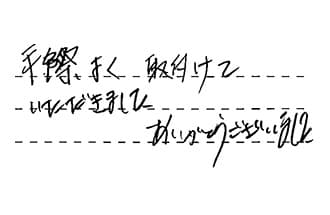 手際よく 取付けて
いただきました
ありがとうございました